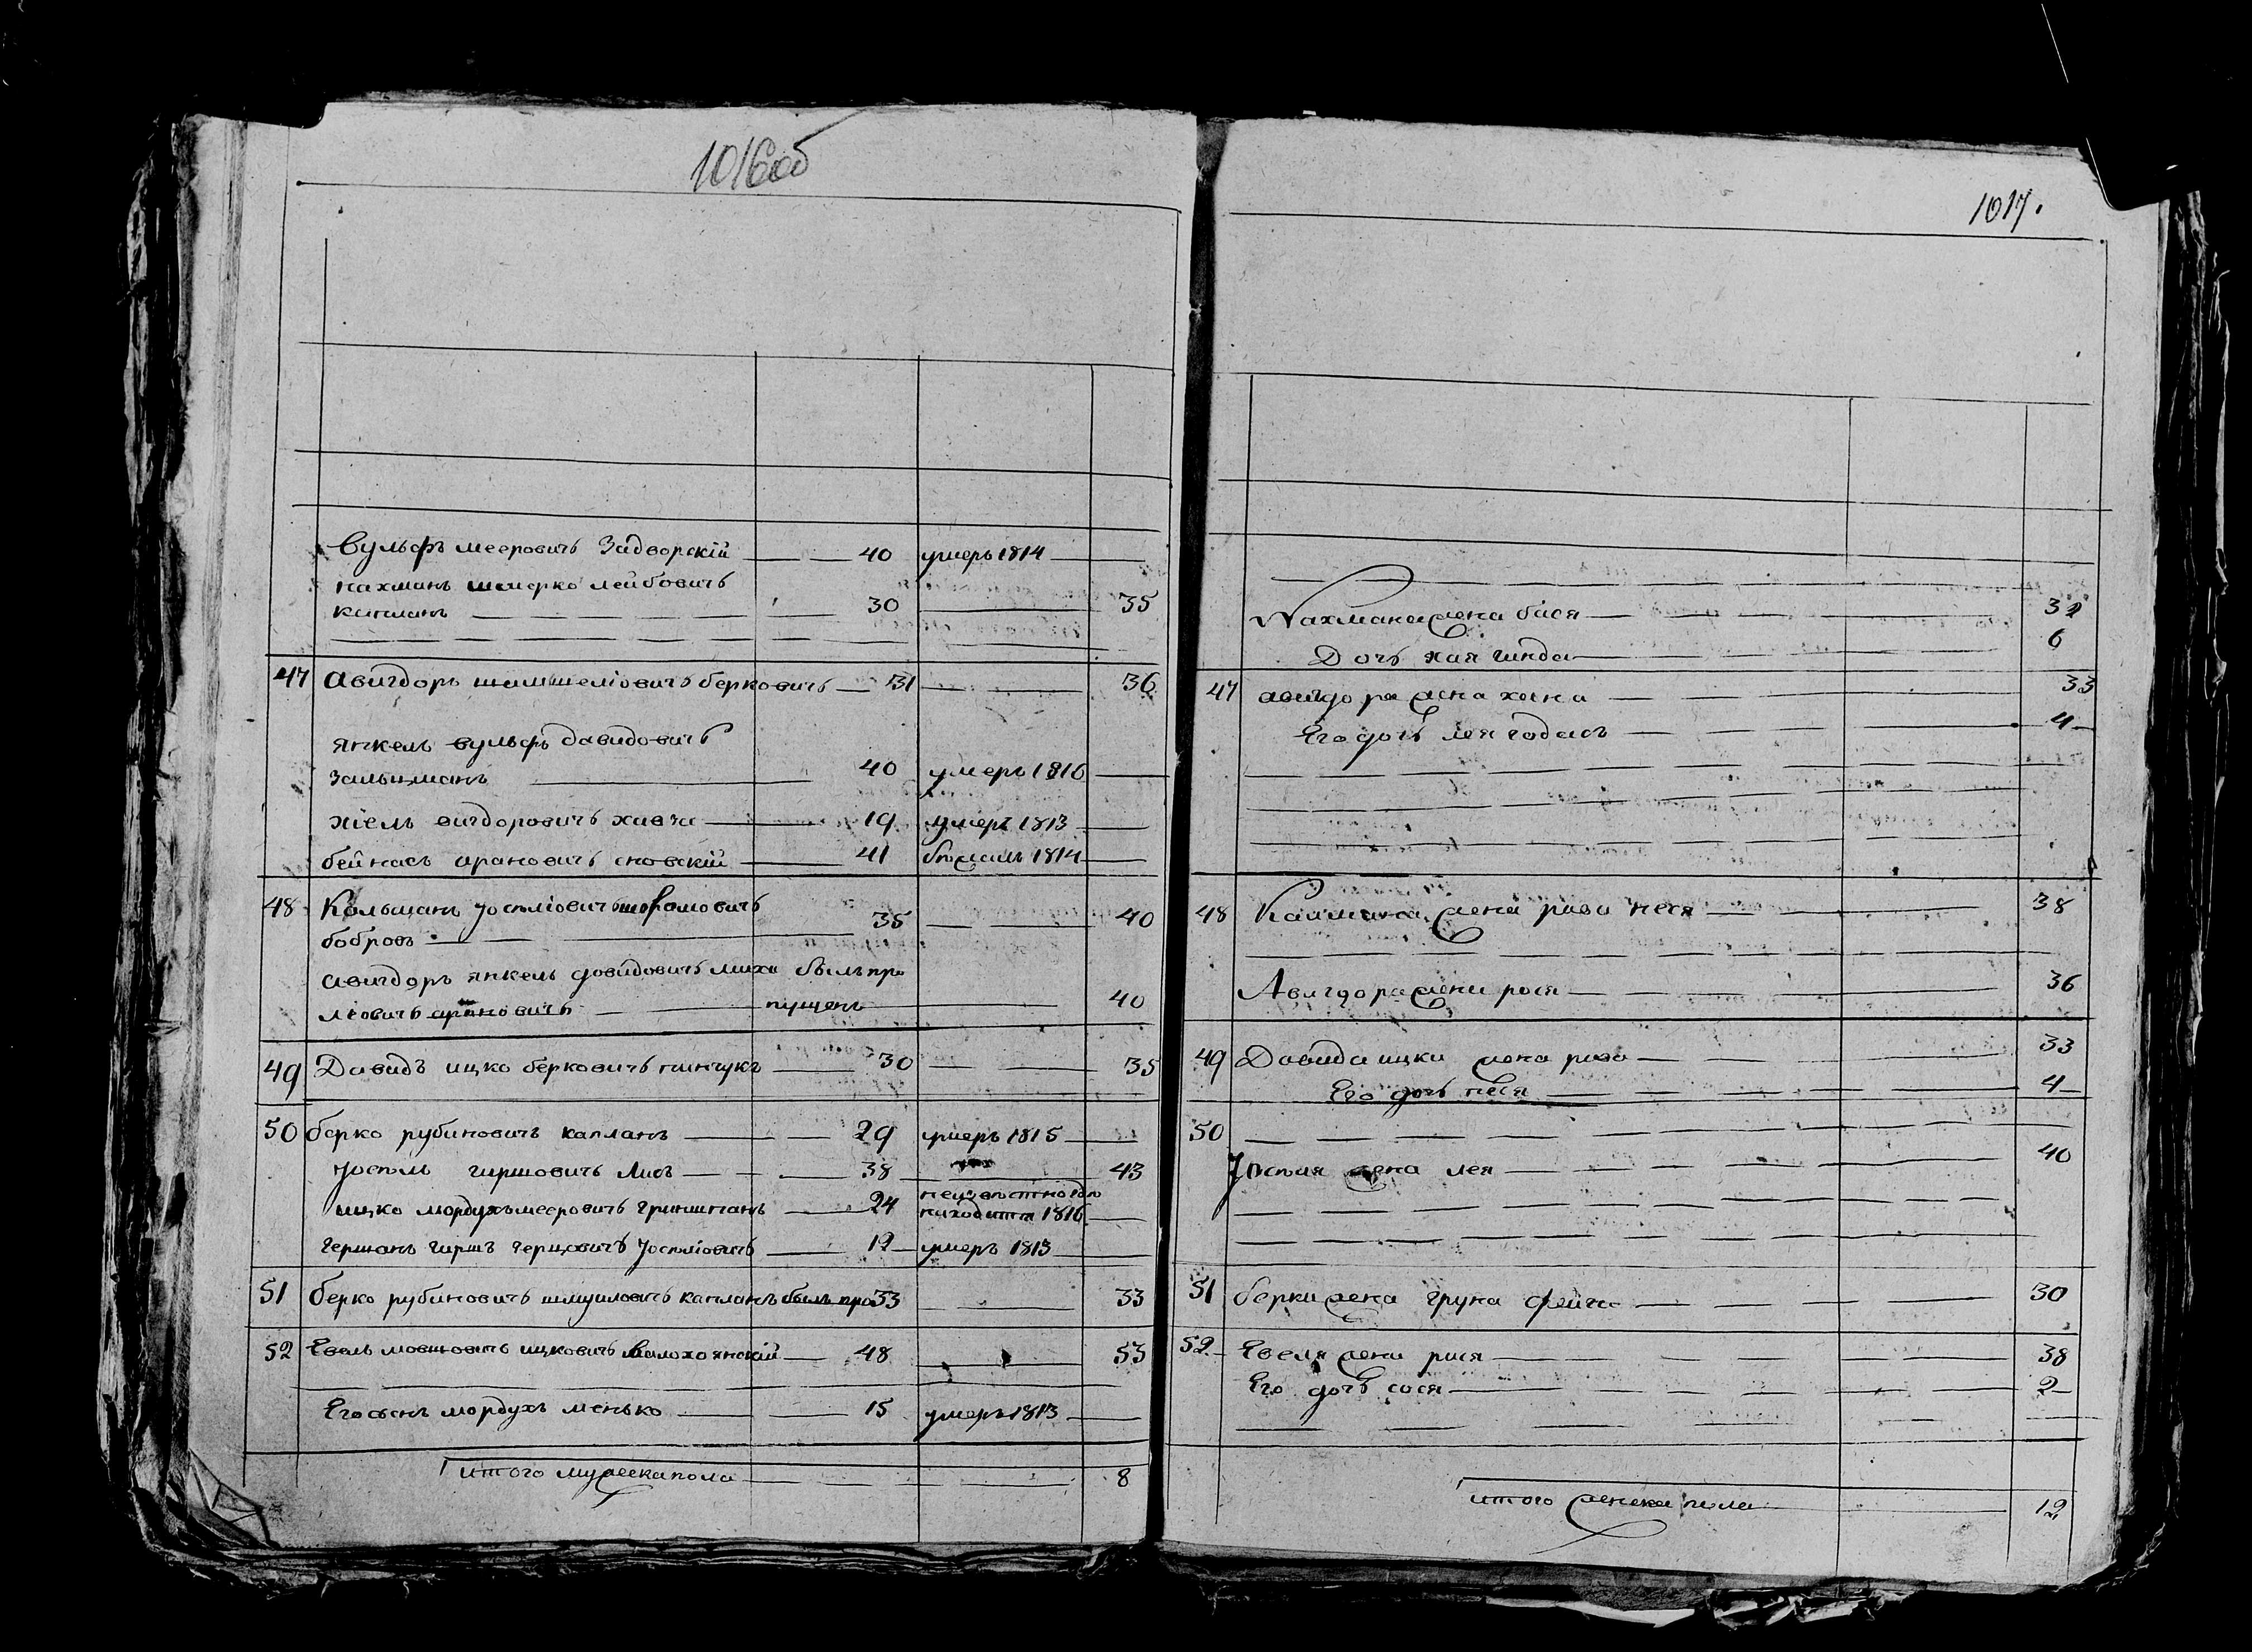 1016об
Вульфъ мееровичъ Задворскій 40 умеръ 1814
нахманъ шмерко лейбовичъ
капланъ 30 35
47 авигдоръ шамшеліовичъ берковичъ 31 36
янкель вульфъ давидовичъ
Зальцманъ 40 умеръ 1816
хіель вигдоровичъ 19 умеръ 1813
бейнасъ ароновичъ сновскій 41 бѣжалъ 1814
48 Кальманъ Іоселіовичъ
бобровъ 35 40
авигдоръ янкель довидовичъ былъ про
ліовичъ ароновичъ пущенъ 40
49 Давидъ ицко берковичъ пинчукъ 30 35
50 берко рубиновичъ капланъ 29 умеръ 1815
Іосель гиршовичъ Лисъ 38 43
ицко мордухъ мееровичъ гриншпанъ 24 неизвѣстно гдѣ
находится 1816
германъ гиршъ герцовичъ Іоселіовичъ 12 умеръ 1813
51 берко рубиновичъ шмуиловичъ капланъ былъ про 33 33
52 Евель мовшовичъ ицковичъ 48 53
Его сынъ мордухъ менько 15 умеръ 1813
итого мужеска пола 8
1017.
Нахмана жена бася 32
Дочь хая гинда 6
47 авигдора жена хана 33
Его дочь лея годасъ 4
48 Калмана жена рива неся 38
Авигдора жена рося 36
49 Давида ицки жена рива 33
Его дочь песя 4
50
Іоселя жена лея 40
51 берки жена груна фейга 30
52 Евеля жена рися 38
Его дочь сося 2
итого женска пола 12